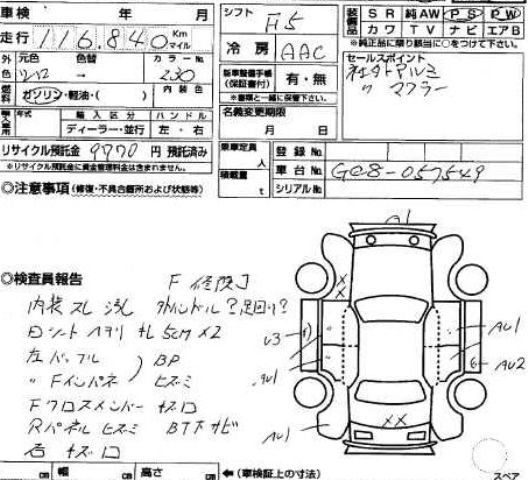 車検 年 月 シフト F5 装備品 SR 純AW PS PW
走行 116,840 Km マイル カワ TV ナビ エアB
冷房 AAC ※純正品に限り該当に○をつけて下さい。
外色 元色 色替 カラーNo. セールスポイント
230 新車整備手帳(保証書付) 有・無 社外アルミ
燃料 ガソリン・軽油・( ) 内装色 ※書類と一緒に保管下さい。 〃 マフラー
名義変更期限
輸入車用 年式 輸入区分 ハンドル 月 日
ディーラー・並行 左・右
リサイクル預託金 9770 円 預託済み 乗車定員 人 登録No.
※リサイクル預託金に資金管理料金は含まれません。 積載量 t 車台No. GC8-057549
◎注意事項(修復・不具合箇所および状態等) シリアルNo.
A1
◎検査員報告 F修限
X
内装スレ汚 外ハンドル?足回り? X
Dシートヘタリ 5cm×2 U3 AU1
左 BP AU1 AU2
〃Fインパネ ヒズミ
Fクロスメンバー キズ凹
XX
Rパネルヒズミ BT下サビ AU1
右 キズ凹
cm 幅 cm 高さ cm ←(車検証上の寸法) スペア